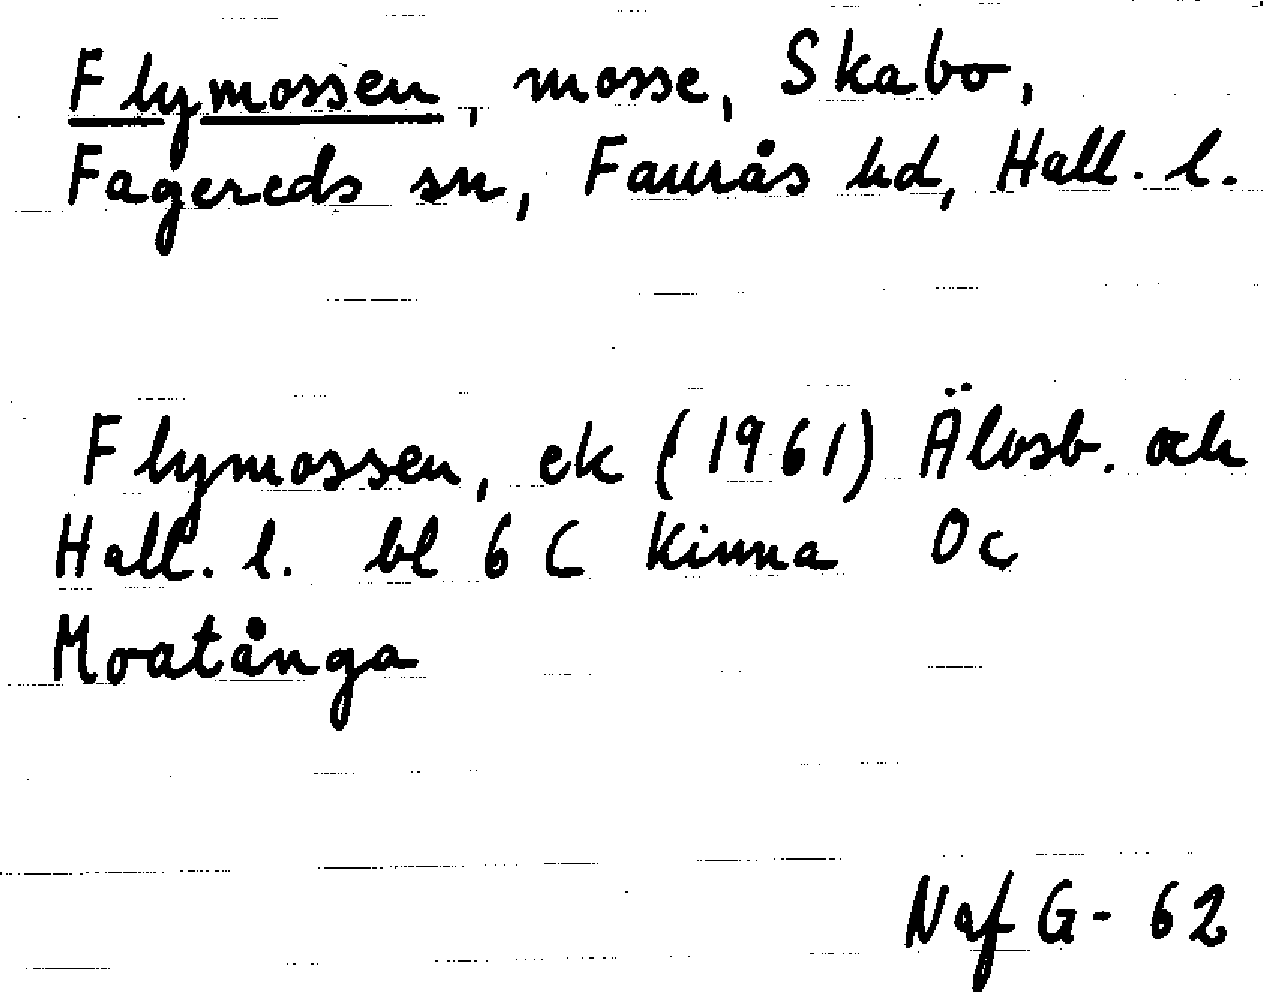 Flymossen, mosse, Skabo,
Fagereds sn, Faurås hd, Hall. l.
Flymossen, ek (1961) Älvsb. och
Hall. l. bl 6 C Kinna Oc
Moatånga
Naf G- 62